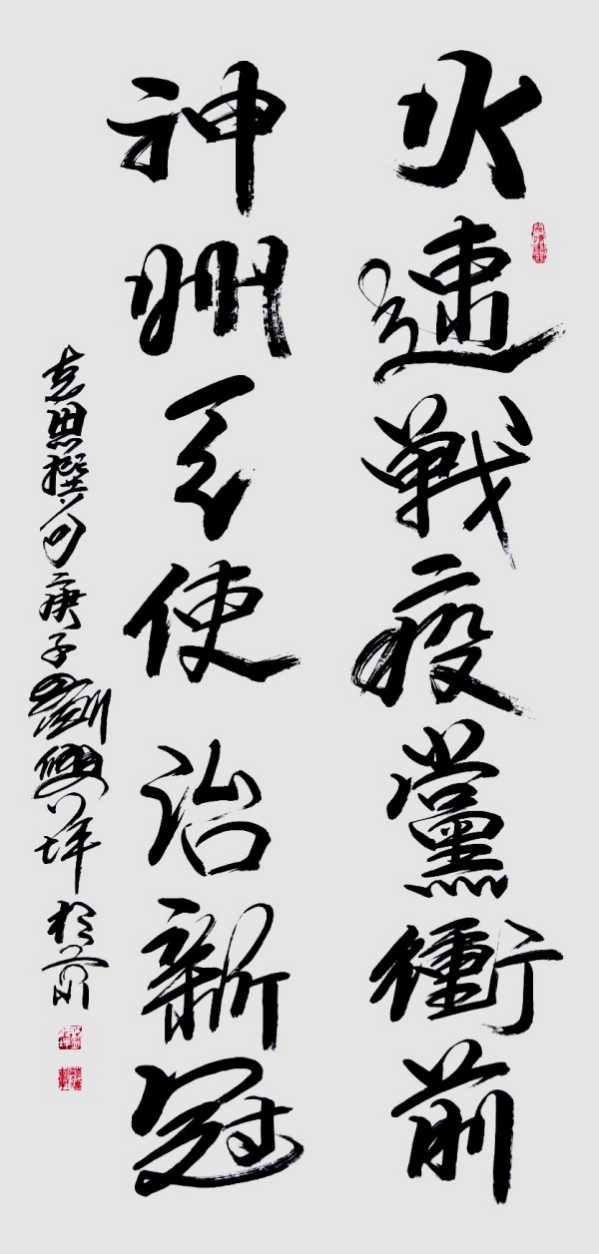 火速戰疫黨衝前
神州天使治新冠
思撰句庚子劉興於